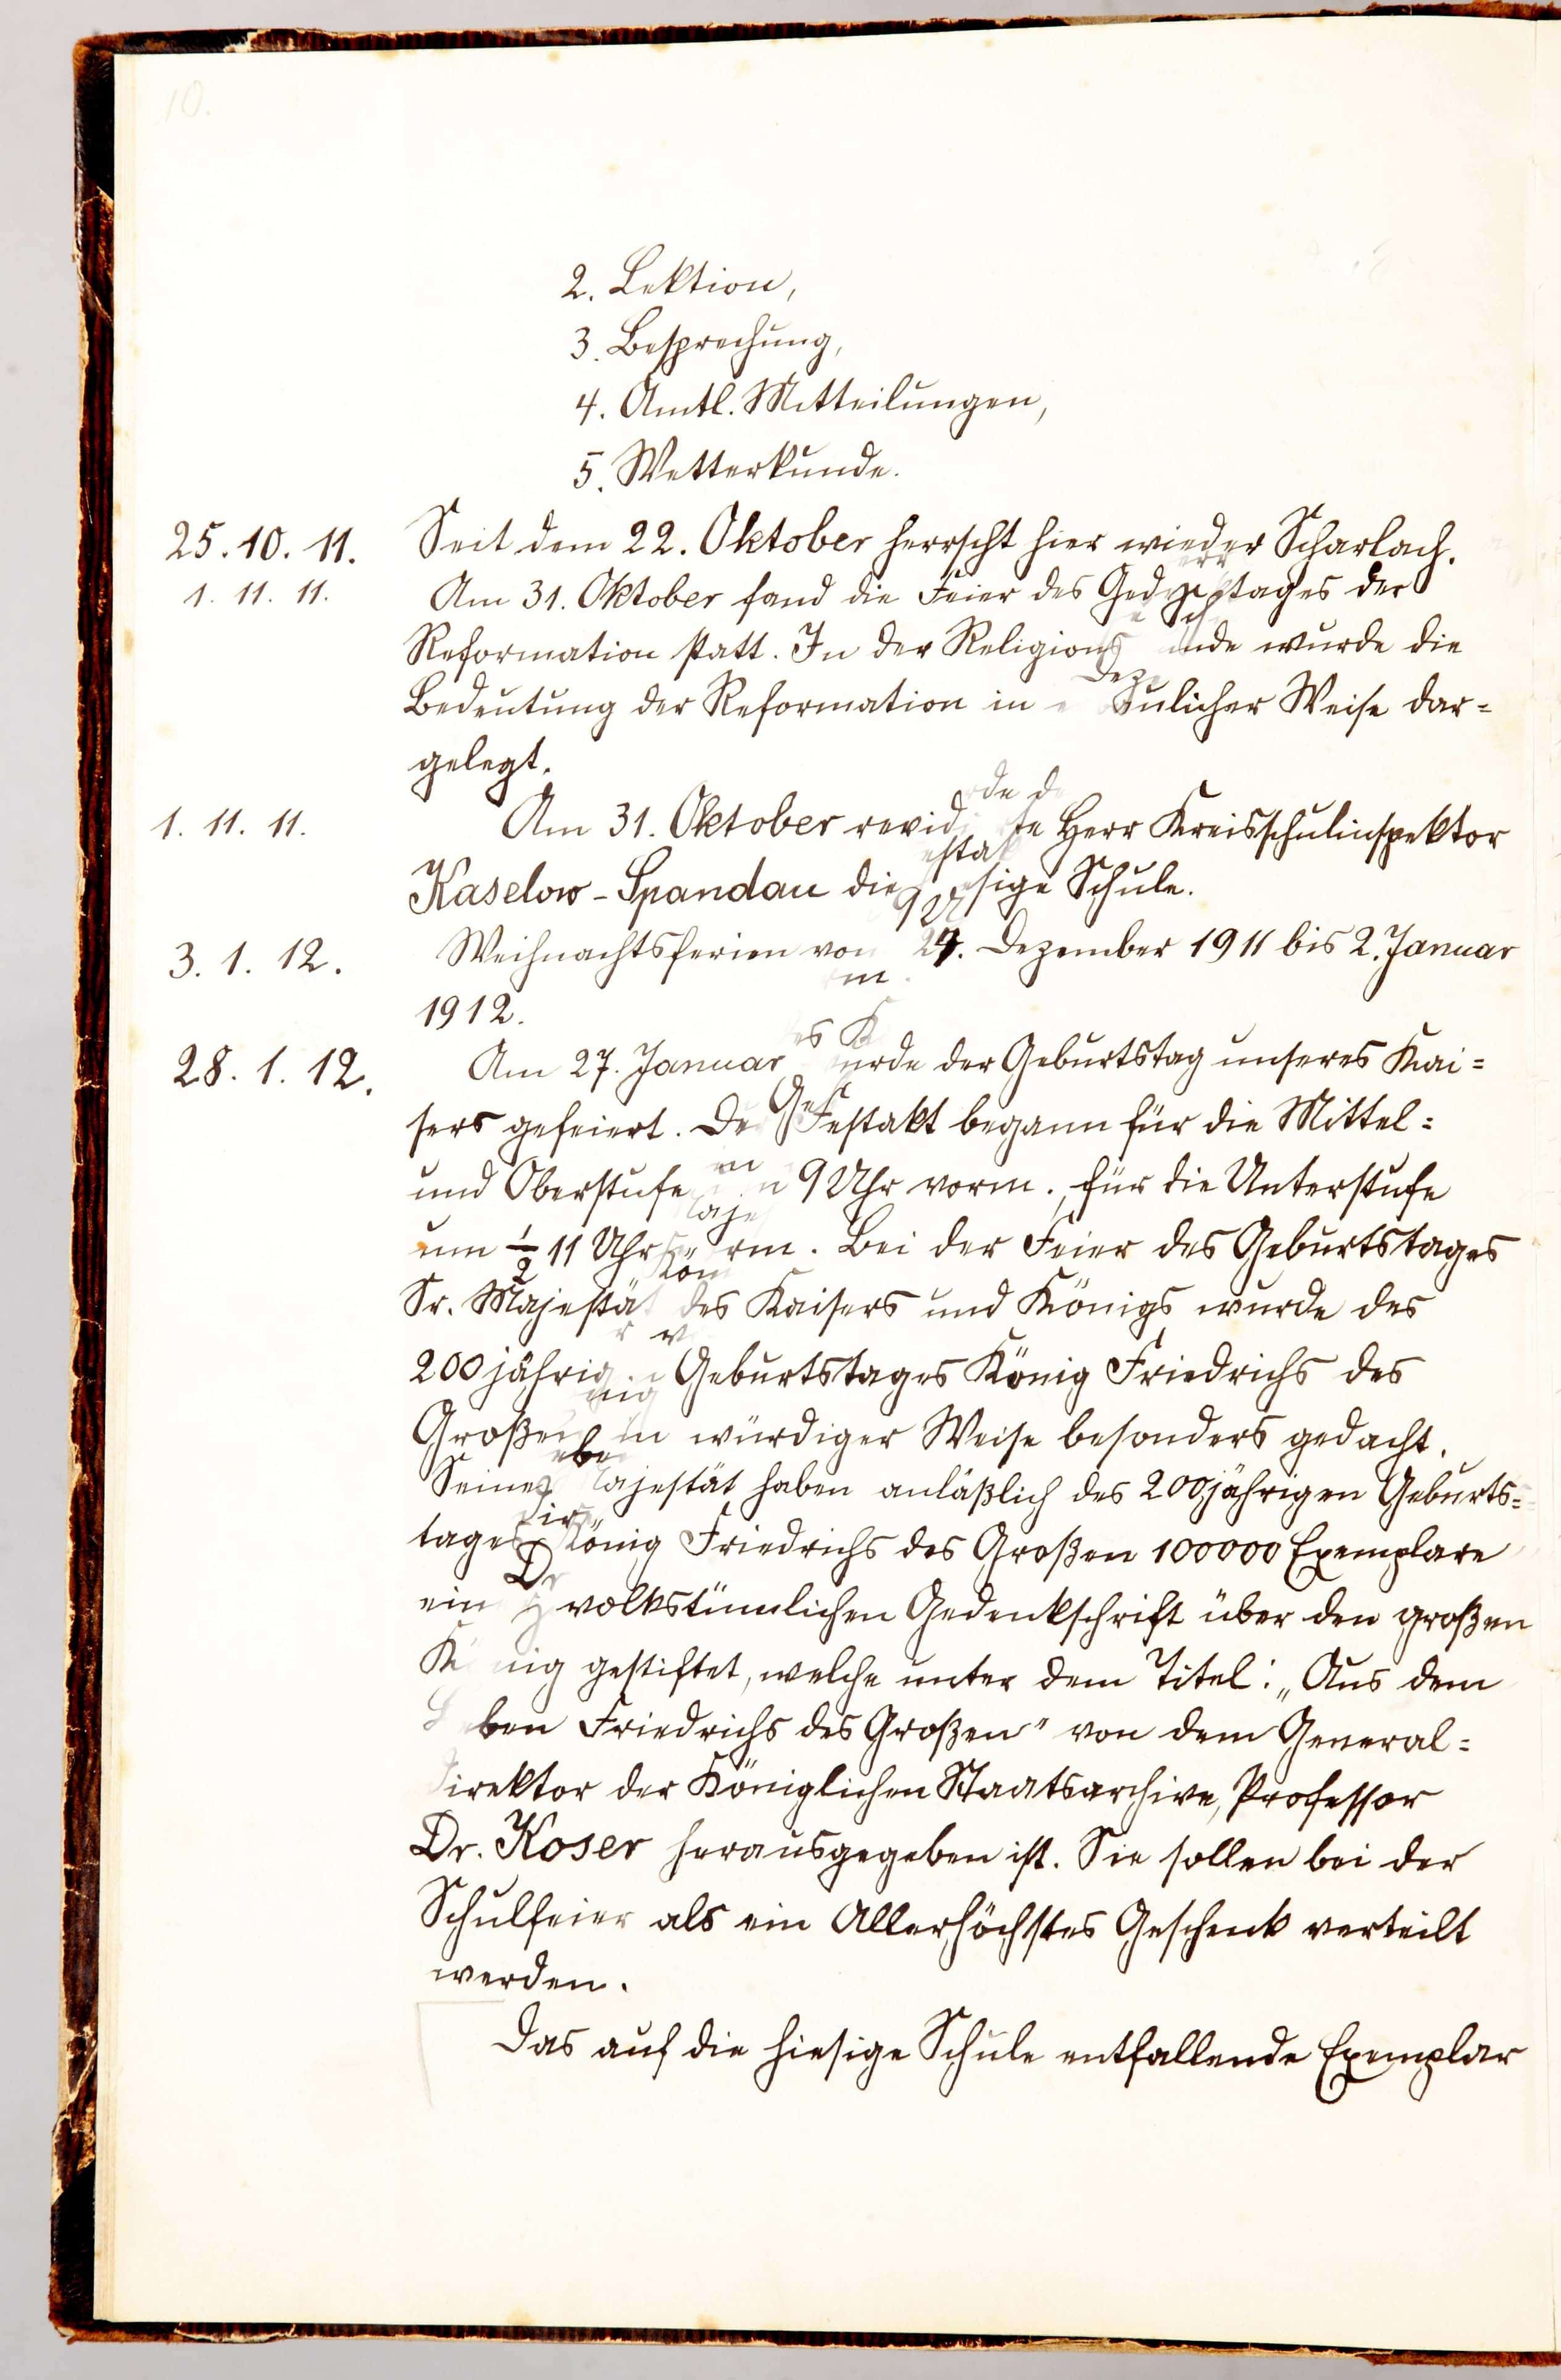 10.
2. Lektion,
3. Besprechung,
4. Amtl. Mitteilungen,
5. Wetterkunde.
25. 10. 11. Seit dem 22. Oktober herrscht hier wieder Scharlach.
1. 11. 11. Am 31. Oktober fand die Feier des tages der
Reformation statt. In der Religions wurde die
Bedeutung der Reformation in Weise dar=
gelegt.
1. 11. 11. Am 31. Oktober Herr Kreisschulinspektor
Kaselow-Spandau die Schule.
3. 1. 12. Weihnachtsferien 24. Dezember 1911 bis 2. Januar
1912.
28. 1. 12. Am 27. Januar der Geburtstag unseres Kai=
sers gefeiert. Festakt begann für die Mittel=
und Oberstufe 9 Uhr vorm., für die Unterstufe
um ½ 11 Uhr Bei der Feier des Geburtstages
Sr. Majestät des Kaisers und Königs wurde des
200 jährig Geburtstages König Friedrichs des
Großen in würdiger Weise besonders gedacht.
Seine ajestät haben anläßlich des 200jährigen Geburts=
tages König Friedrichs des Großen 100000 Exemplare
ein volkstümlichen Gedenkschrift über den großen
K nig gestiftet, welche unter dem Titel: „Aus dem
ben Friedrichs des Großen" von dem General=
direktor der Königlichen Staatsarchive, Professor
Dr. Koser herausgegeben ist. Sie sollen bei der
Schulfeier als ein Allerhöchstes Geschenk verteilt
werden.
Das auf die hiesige Schule entfallende Exemplar